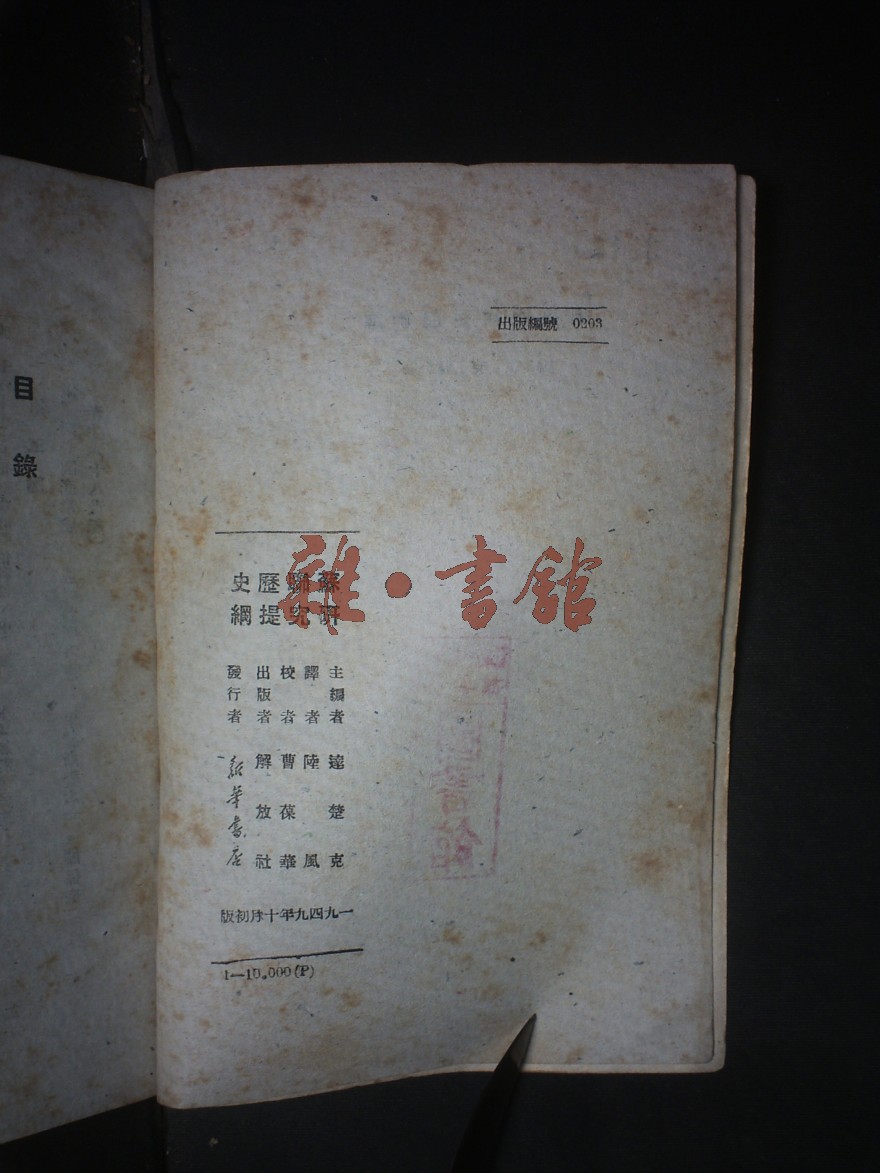 目錄
出版編號 0203
蘇聯歷史
研究提綱
主編者 達楚克
譯者 陸風
校者 曹葆華
出版者 解放社
發行者 新華書店
一九四九年十月初版
1—10,000(P)
雜·書館